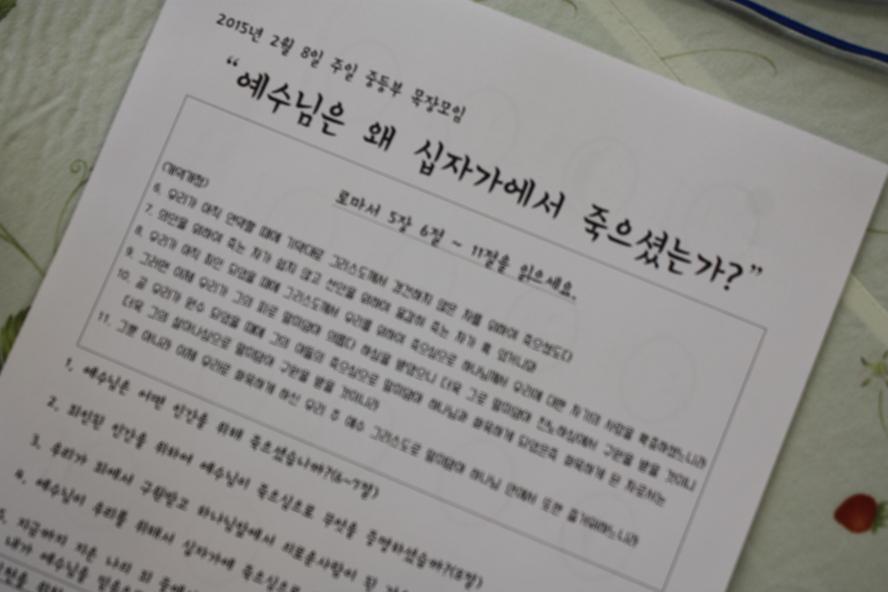 2015년 2월 8일 주일 중등부 목장모임
“예수님은 왜 십자가에서 죽으셨는가?”
로마서 5장 6절 ~ 11절을 읽으세요.
(개역개정)
6. 우리가 아직 연약할 때에 기약대로 그리스도께서 경건하지 않은 자를 위하여 죽으셨도다
7. 의인을 위하여 죽는 자가 쉽지 않고 선인을 위하여 용감히 죽는 자가 혹 있거니와
8. 우리가 아직 죄인 되었을 때에 그리스도께서 우리를 위하여 죽으심으로 하나님께서 우리에 대한 자기의 사랑을 확증하셨느니라
9. 그러면 이제 우리가 그의 피로 말미암아 의롭다 하심을 받았으니 더욱 그로 말미암아 진노하심에서 구원을 받을 것이니
10. 곧 우리가 원수 되었을 때에 그의 아들의 죽으심으로 말미암아 하나님과 화목하게 되었은즉 화목하게 된 자로서는
더욱 그의 살아나심으로 말미암아 구원을 받을 것이니라
11. 그뿐 아니라 이제 우리로 화목하게 하신 우리 주 예수 그리스도로 말미암아 하나님 안에서 또한 즐거워하느니라
1. 예수님은 어떤 인간을 위해 죽으셨습니까?(6~7절)
2. 죄인된 인간을 위하여 예수님이 죽으심으로 무엇을 증명하셨습니까?(8절)
3. 우리가 죄에서 구원받고 하나님앞에서 의로운사람이 된
4. 예수님이 우리를 위해서 십자가에 죽으심으로
5. 지금까지 지은 나의 죄
내가 예수님을